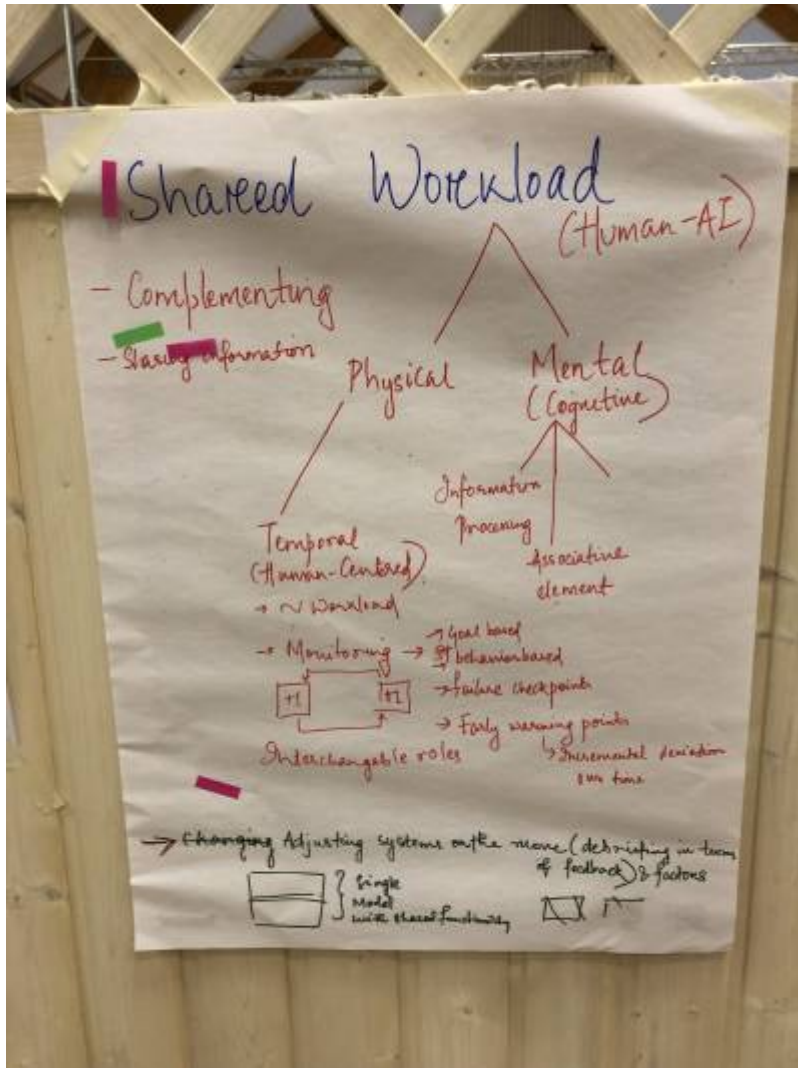 Shared Workload
(Human-AI)
- Complementing
- Sharing information
Physical
Mental
(Cognitive)
Information
Processing
Associative
element
Temporal
(Human-Centred)
→ ~ Workload
→ Monitoring → → Goal based
→ behavior based
→ failure checkpoints
→ Early warning points
↳ Incremental deviation
over time
+1
Interchangable roles
→ Changing Adjusting systems on the move (debriefing in terms
of feedback) & factors
Single
Model
with shared functionality